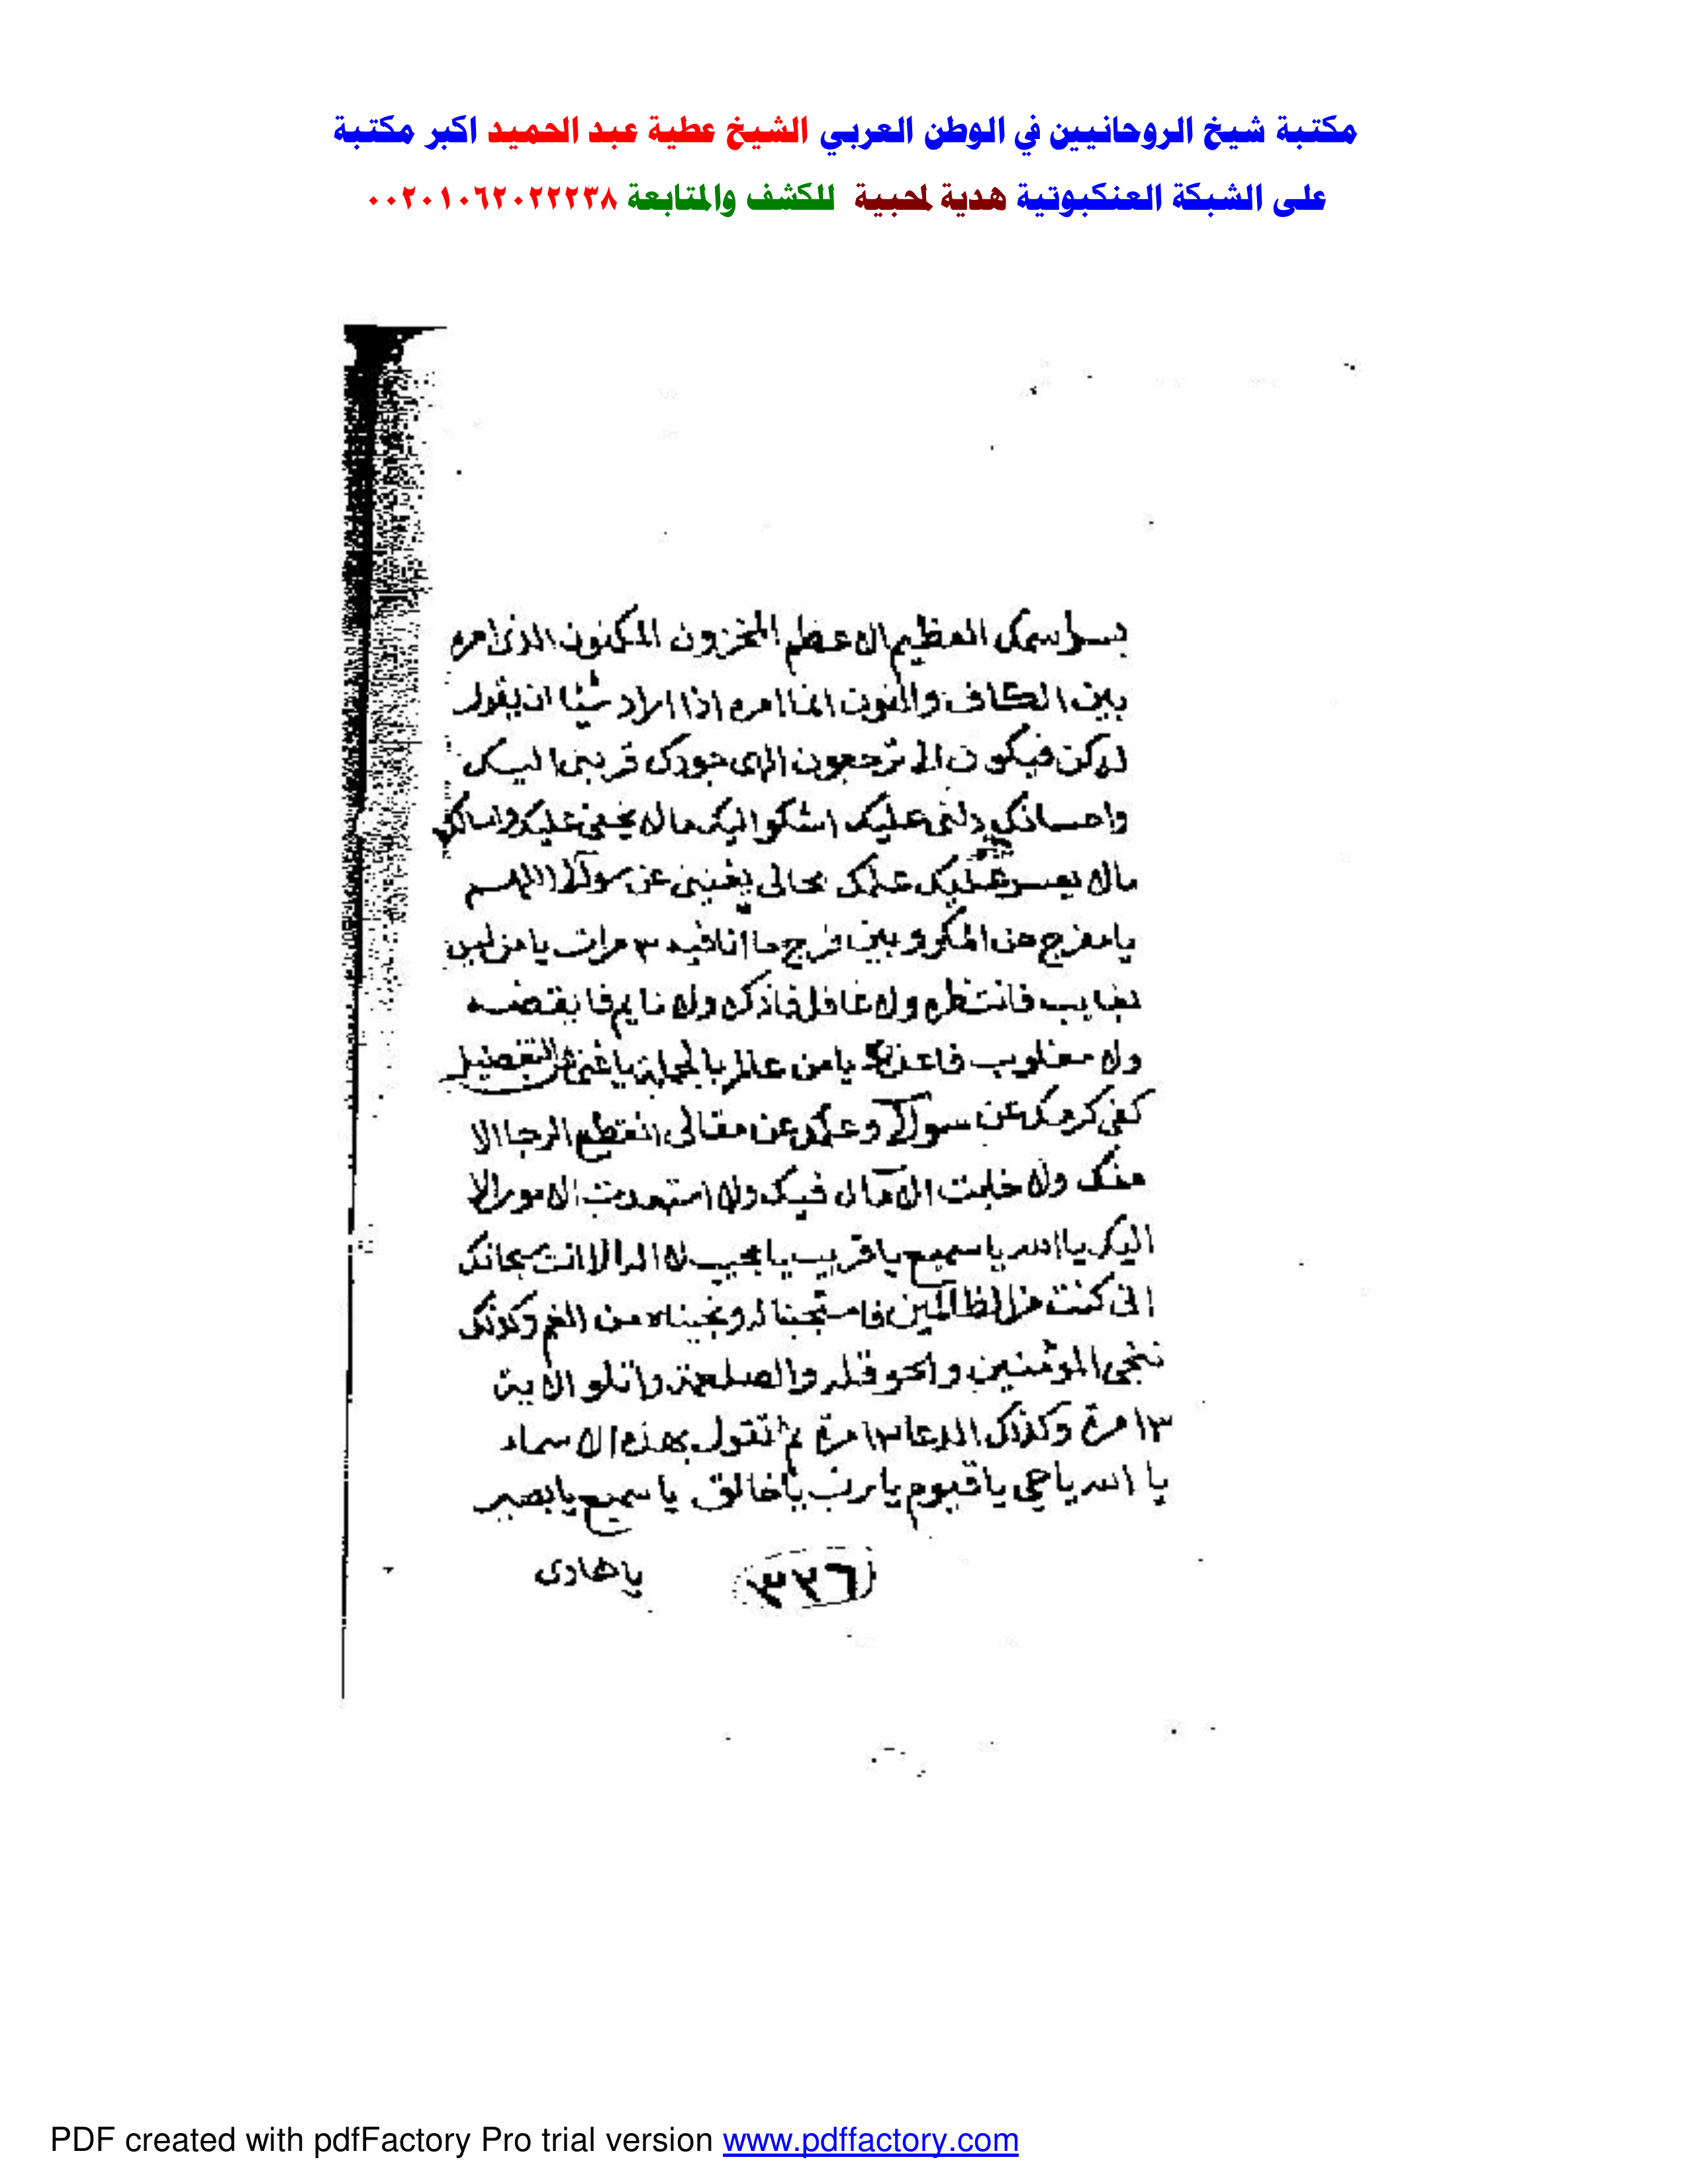 مكتبة شيخ الروحانيين في الوطن العربي الشيخ عطية عبد الحميد اكبر مكتبة
على الشبكة العنكبوتية هدية لمحبيه للكشف والمتابعة ٠٠٢٠١٠٦٢٠٢٢٢٣٨
بسر اسمك العظيم الاعظم المخزون المكنون الذي امره
بين الكاف والنون انما امره اذا اراد شيئا ان يقول
له كن فيكون اليه ترجعون الهى جودك قربنى اليك
واحسانك دلنى عليك اشكو اليك مالا يخفى عليك واسالك
مالا يعسر عليك علمك بحالى يغنينى عن سوالى اللهم
يا مفرج عن المكروبين فرج ما انا فيه ٣ مرات يا من ليس
بغايب فانتظره ولا غافل فاذكره ولا نايم فايقضه
ولا مغلوب يا من علم بالجملة يا غنى عن التفصيل
كفى كرمك عن سوالى وعلمك عن مقالى انقطع الرجا الا
منك ولا خابت الامال فيك ولا الامور الا
اليك يا الله يا سميع يا قريب يا مجيب لا اله الا انت سبحانك
انى كنت من الظالمين فاستجبنا له ونجيناه من الغم وكذلك
ننجى المؤمنين والحوقله واتلو الاية
١٣ مرة وكذلك الدعا ١٣ مرة ثم تقول بهذه الاسماء
يا الله يا حي يا قيوم يا رب يا خالق يا سميع يا بصير
يا هادى
٣٢٦
PDF created with pdfFactory Pro trial version www.pdffactory.com